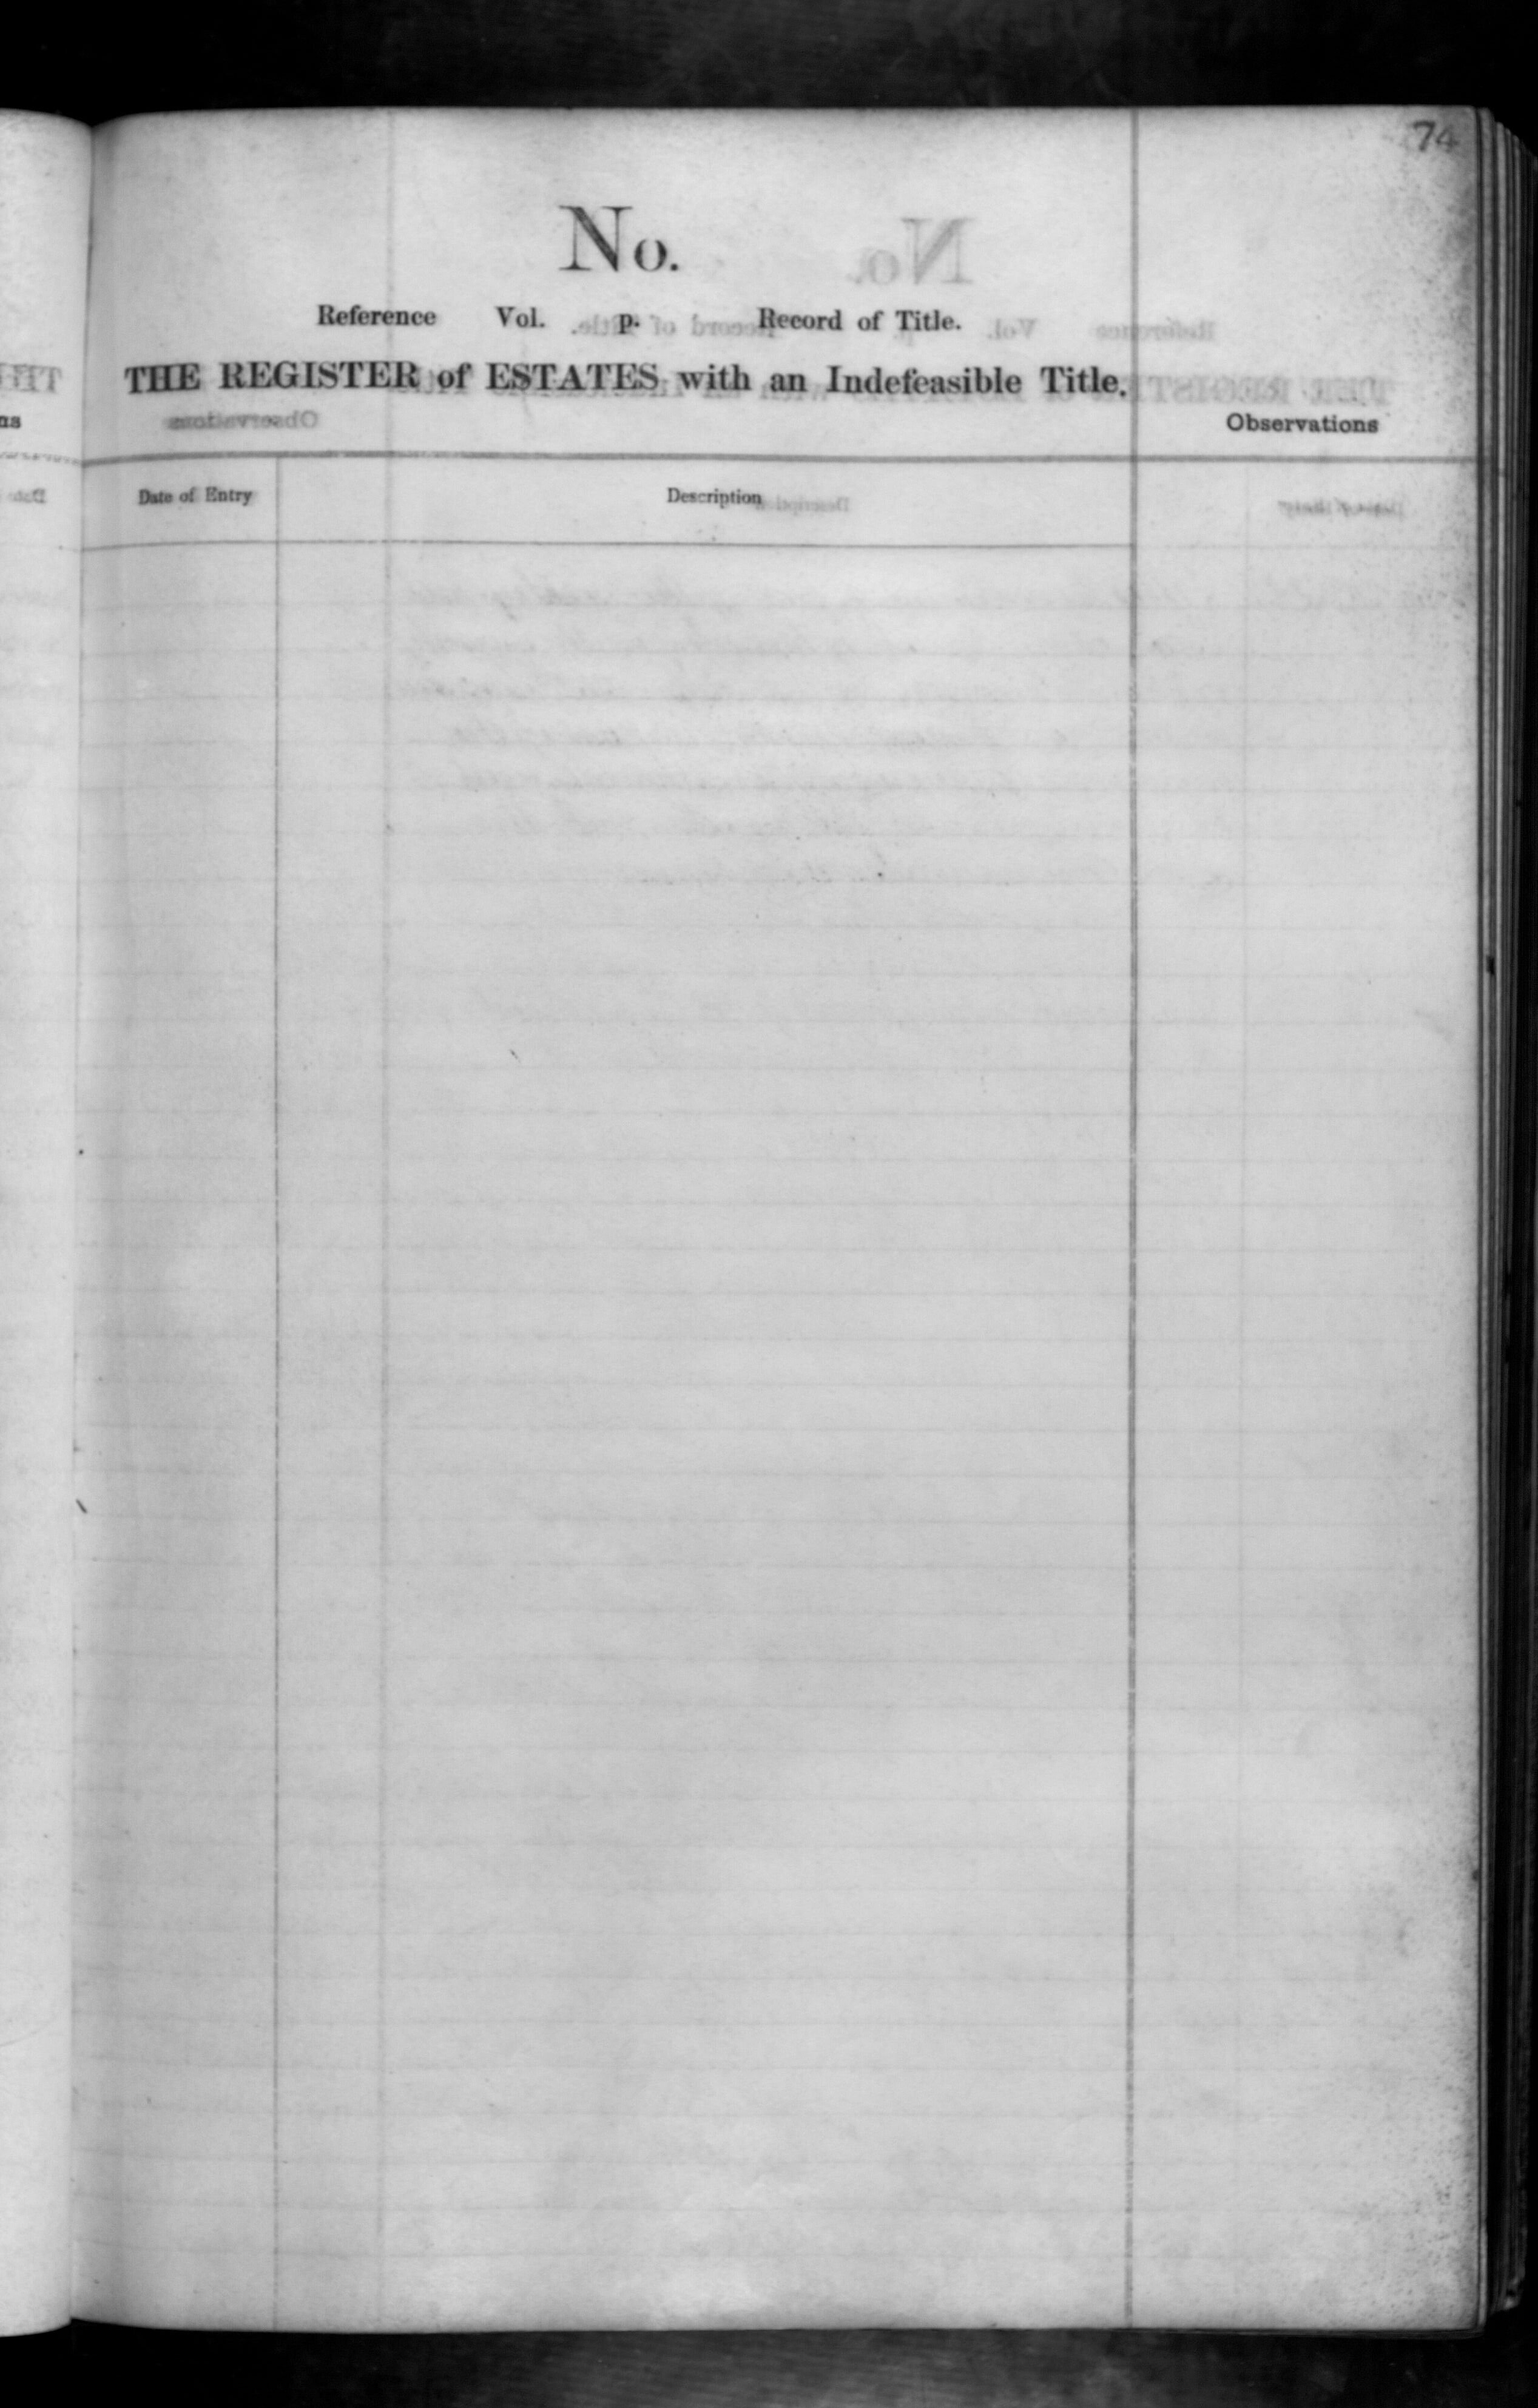 74
No.
Reference Vol. p. Record of Title.
THE REGISTER of ESTATES with an Indefeasible Title.
Observations
Date of Entry Description